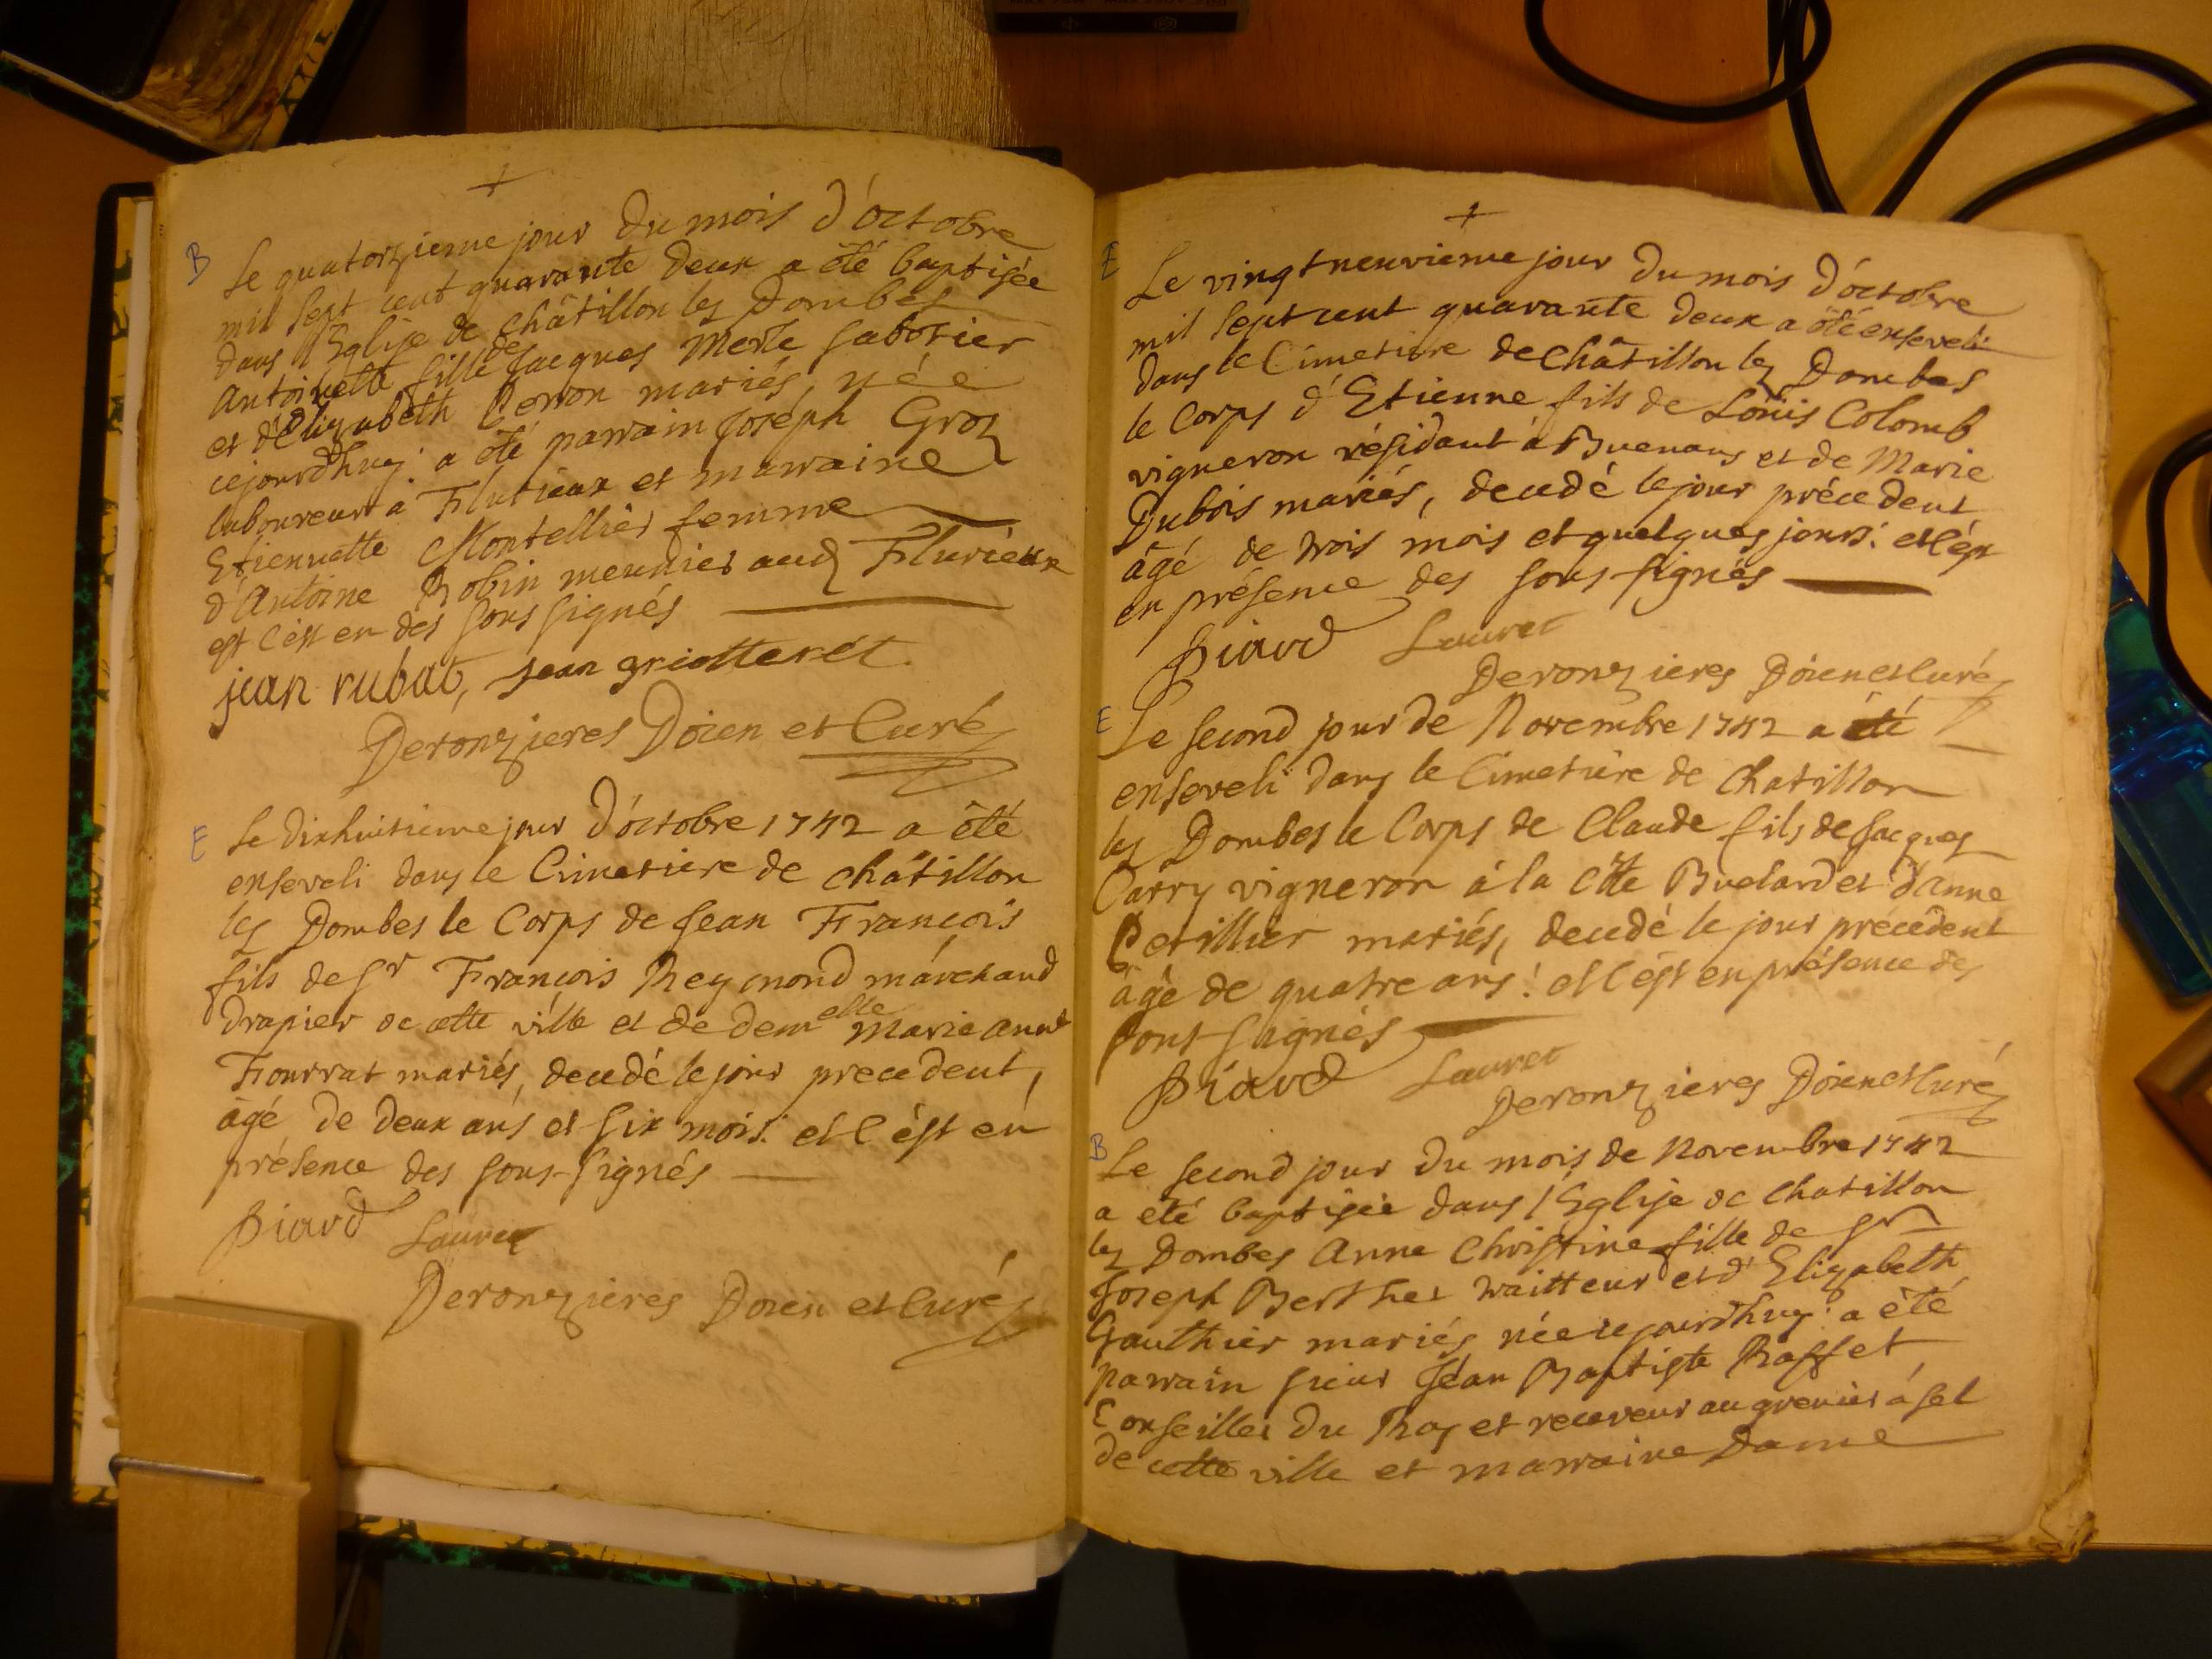 B
Le quatorzieme jour du mois d'octobre
mil sept cent quarante deux a été baptisée
dans l'Eglise de châtillon les Dombes
Antoinette fille de Jacques Merle sabotier
et d'Elizabeth Perron mariés, née
cejourdhuy: a été parrain Joséph Groz
laboureur à Flurieux et marraine
Etiennette Montellier femme
d'Antoine Robin meunier aud Flurieux
est c'est en des sous signés
jean rubat, jean griotteret
Deronzieres Doien et Curé
E
Le dixhuitieme jour d'octobre 1742 a été
enseveli dans le Cimetiere de châtillon
les Dombes le Corps de Jean François
fils de Sr François Reymond marchand
drapier de cette ville et de demelle Marie Anne
Fourrat mariés, decedé le jour precedent,
âgé de deux ans et six mois: et c'est en
présence des sous-signés
Piard Lauret
Deronzieres Doien et Curé
E
Le vingtneuvieme jour du mois d'octobre
mil sept cent quarante deux a été enseveli
dans le Cimetiere de Châtillon les Dombes
le Corps d'Etienne fils de Loüis Colomb
vigneron résidant à Buenans et de Marie
Dubois mariés, decedé le jour précedent
âgé de trois mois et quelques jours: et c'est
en présence des sous-signés
Piard Lauret
Deronzieres Doien et Curé
E
Le second jour de Novembre 1742 a été
enseveli dans le Cimetiere de Chatillon
les Dombes le Corps de Claude fils de Jacques
Carry vigneron à la Côte Buelard et d'Anne
Petillier mariés, decedé le jour précedent
âgé de quatre ans: et c'est en présence des
sous signés
Piard Lauret
Deronzieres Doien et Curé
B
Le second jour du mois de Novembre 1742
a été baptisée dans l'Eglise de Chatillon
les Dombes Anne Christine fille de Sr
Joseph Berthet traitteur et d'Elizabeth
Gauthier mariés née cejourdhuy: a été
parrain sieur Jean Baptiste Raffet
Conseiller du Roy et receveur au grenier à sel
de cette ville et marraine Dame